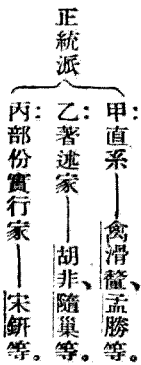 正統派
甲：直系——禽滑釐、孟勝等。
乙：著述家——胡非、隨巢等。
丙：部份實行家——宋鈃等。